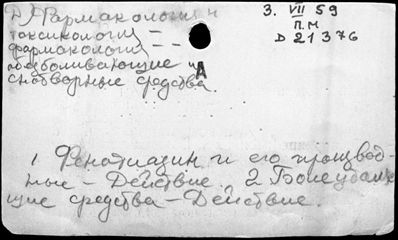 Д Фармакология и
токсикология =
фармакология = -
обезболивающие и
А
снотворные средства
3. VII 59
П.М
D 21376
1 Фенотиазин и его производ-
ные - Действие. 2 Болеутоляю
щие средства - Действие.